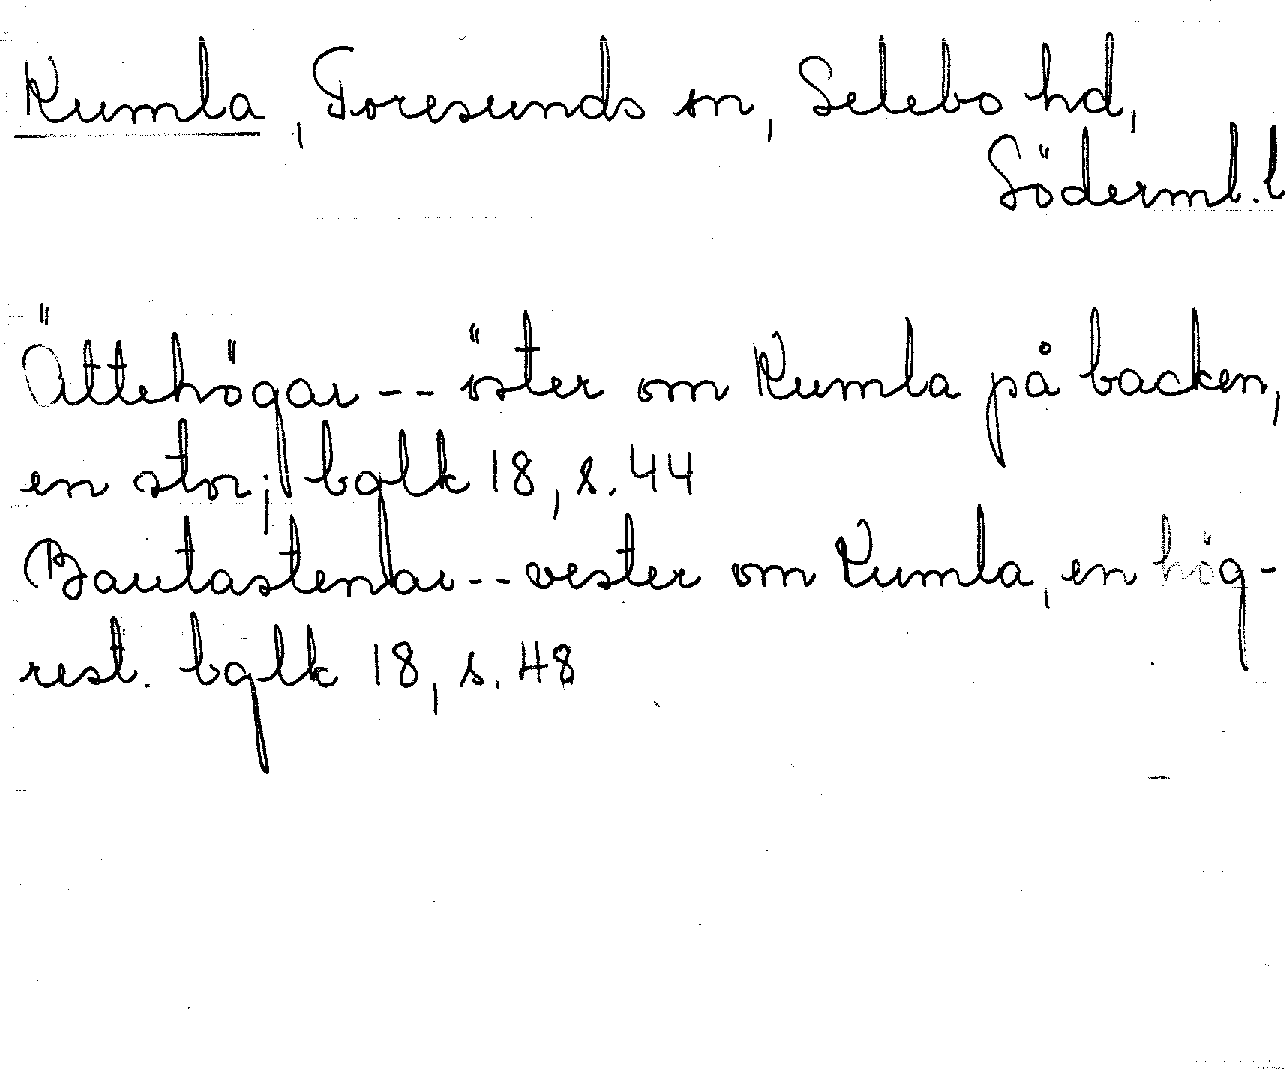 Kumla, Toresunds sn, Selebo hd,
Söderml. l
Ättehögar -- öster om Kumla på backen,
en stor; bglk 18, s. 44
Bautastenar -- vester om Kumla, en hög-
rest. bglk 18, s. 48